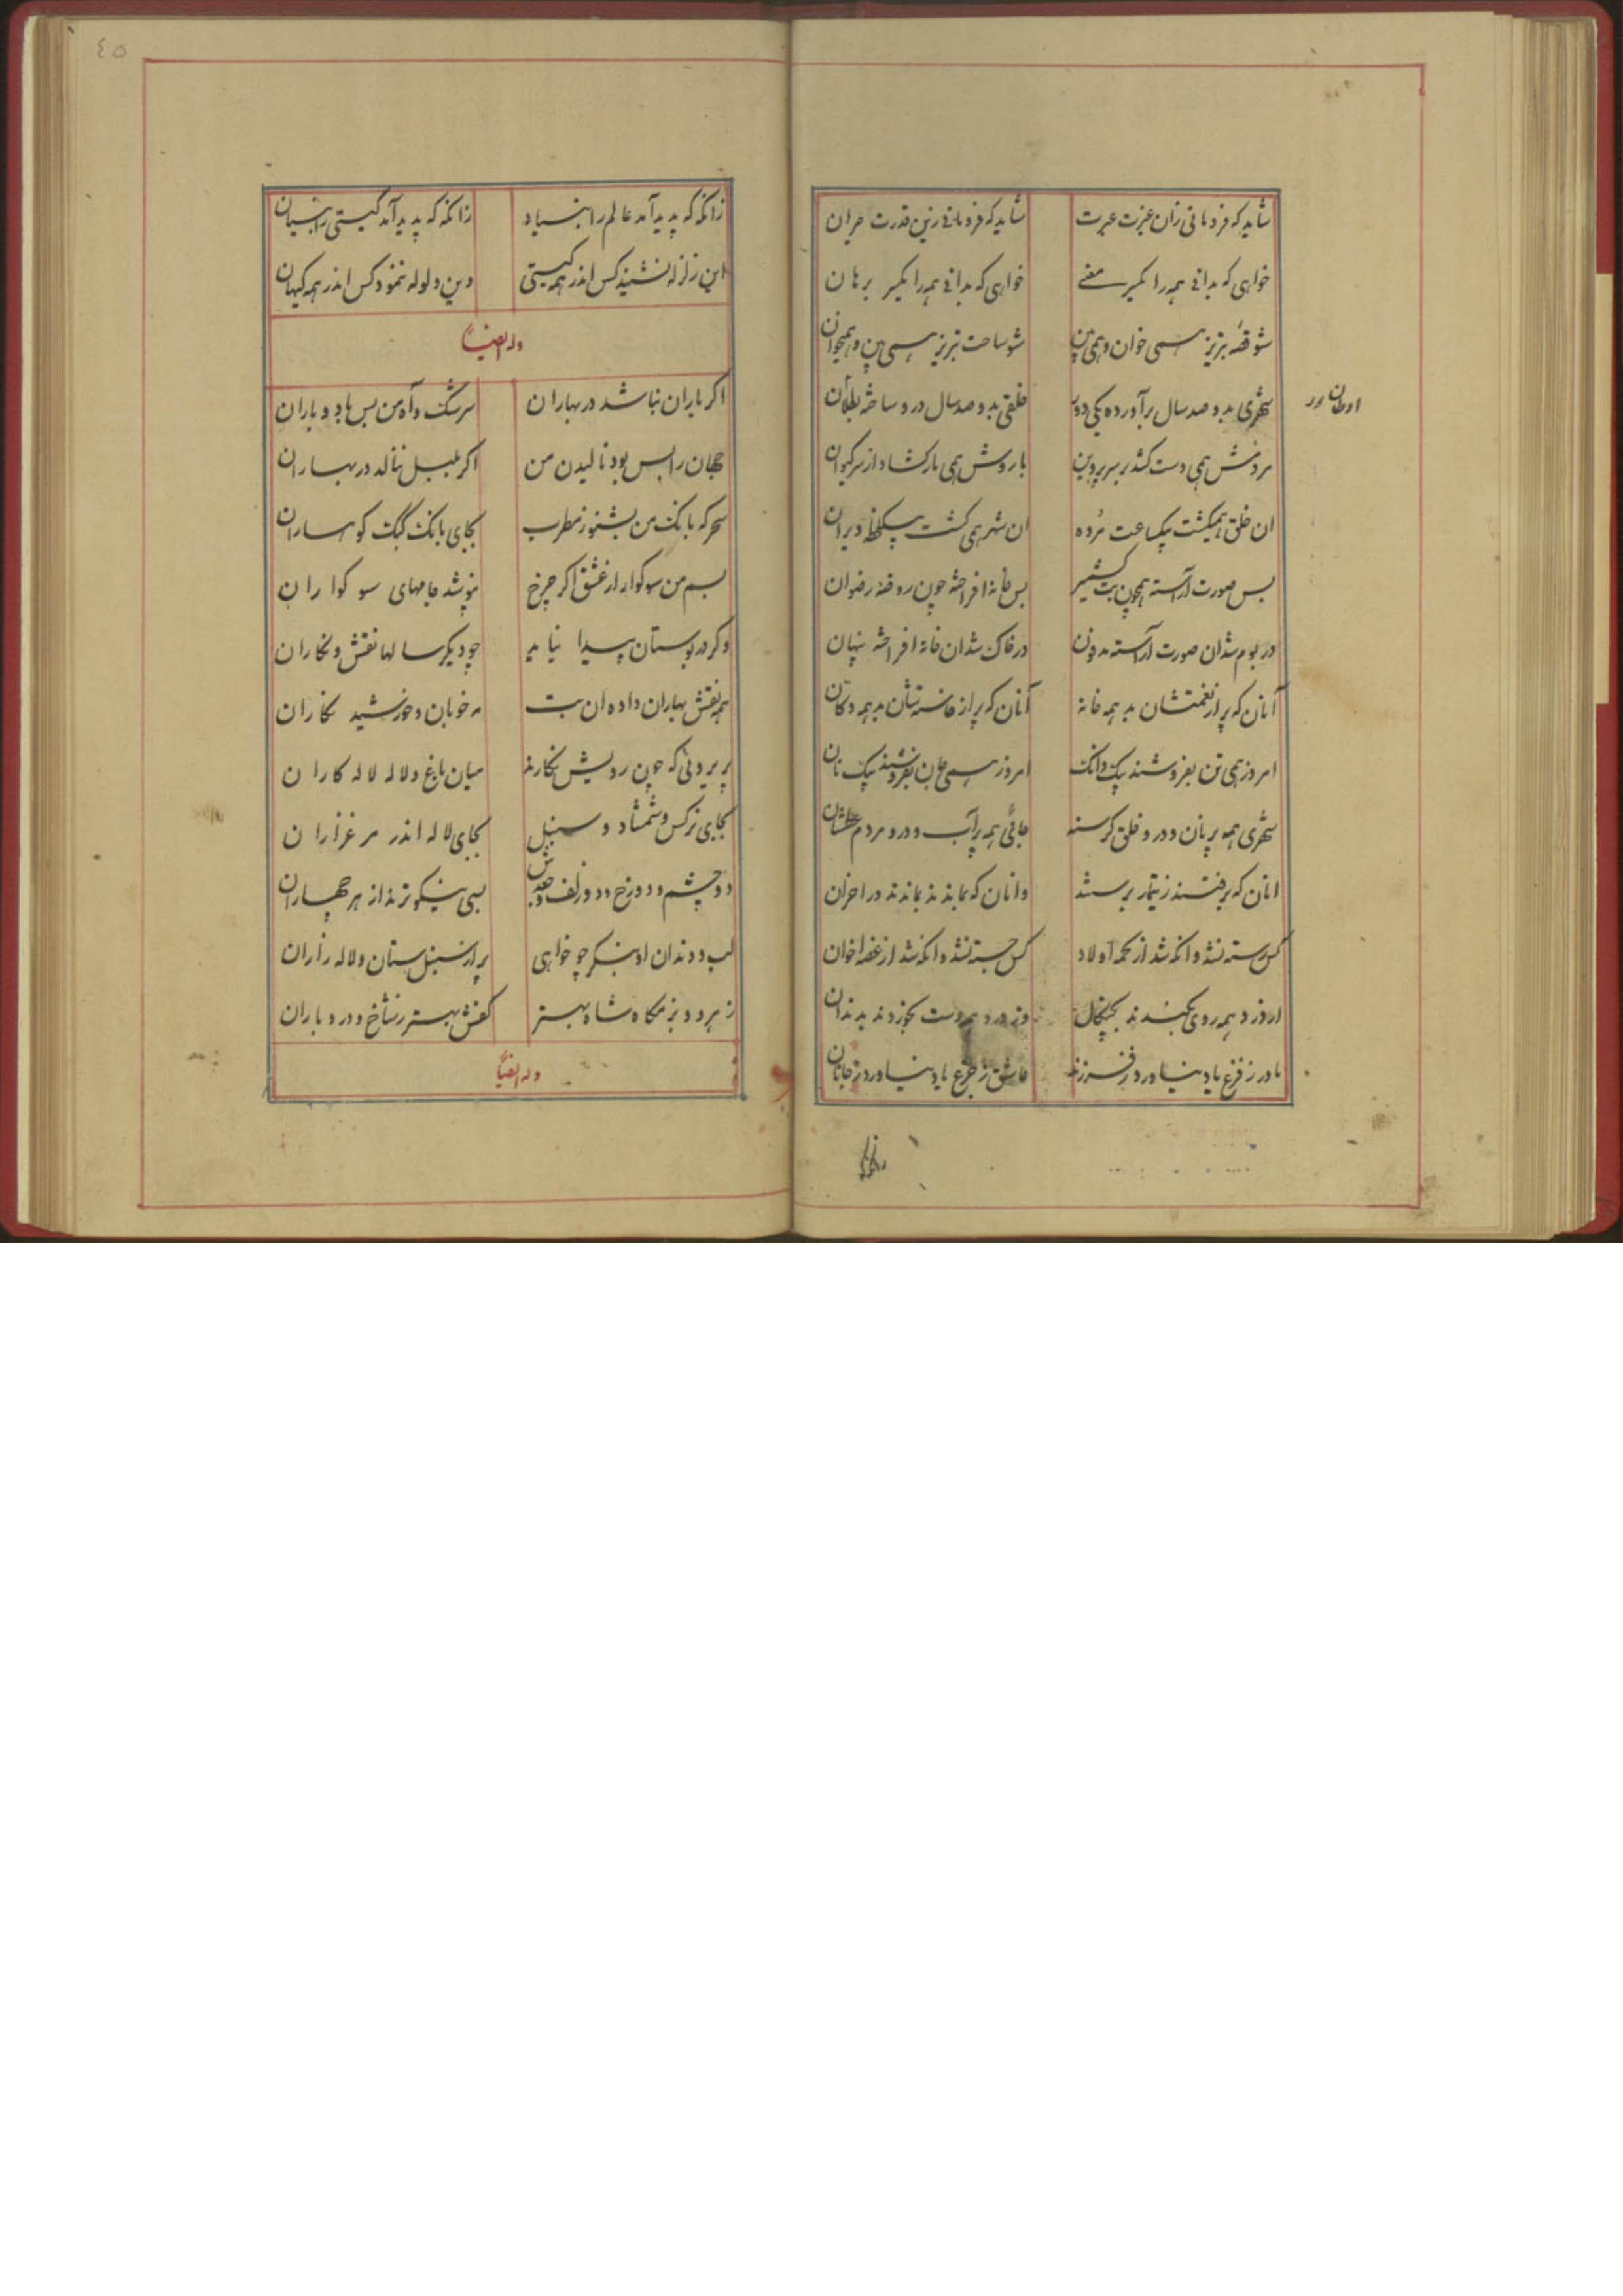 شاید که فرومانی زان عزت عبرت شاید که فرومانی زین قدرت حیران
خواهی که بدانی همه را یکسر معنی خواهی که بدانی همه را یکسر برهان
شو قصهٔ تبریز همی خوان و همی بین شو ساحت تبریز همی بین و همیخوان
شهری بدو صد سال برآورده یکی دور خلقی بدو صد سال در و ساخته
اوطان
مردمش همی دست کشد بر سر پروین باروش همی بارکشاد از سر کیوان
ان خلق همیکشت بیکساعت مُرده ان شهر همی کشت بیکلحظه ویران
بس صورت آراسته همچون بت کشمیر بس خانه افراخته چون روضه رضوان
در بوم شد ان صورت آراسته مدفون در خاک شد ان خانه افراخته پنهان
آنان که پر از نعمتشان بد همه خانه آنان که پر از خاسته‌شان بد همه دکان
امروز همی تن بفروشند بیک دانک امروز همی جان بفروشند بیک نان
شهری همه پر نان و درو خلق کرسنه جائی همه پر آب و درو مردم عطشان
انان که برفتند ز تیمار برستند وانان که بماندند بماندند در احزان
کس رسته نشد وانکه شد از محمه اولاد کس جسته نشد وانکه شد از غصه اخوان
از درد همه روی بکندند بچنکال وز درد همه دست بخوردند بدندان
مادر ز فزع یاد نیاورد ز فرزند عاشق ز فزع یاد نیاورد ز جانان
زانکه
٤٥
زانکه که پدید آمد عالم را بنیاد زانکه که پدید آمد کیتی را بنیان
این زلزله نشنید کس اندر همه کیتی وین ولوله ننمود کس اندر همه کیهان
وله ایضاً
اکر باران نباشد در بهاران سرشک و آه من بس باد و باران
جهان را بس بود نالیدن من اکر بلبل ننالد در بهاران
سحرکه بانک من بشنو ز مطرب بجای بانک کبک کوهساران
بسم من سوکوار از عشق اکر چرخ نپوشد جامهای سوکواران
وکر در بوستان پیدا نیاید چو دیکر سالها نقش و نکاران
همه نقش بهاران داد ه ان بت مه خوبان و خورشید نکاران
پریروئی که چون رویش نکارند میان باغ و لاله لاله کاران
بجای نرکس و شمشاد و سنبل بجای لاله اندر مرغزاران
دو چشم و دو رخ و دو زلف و جعدش بسی نیکوترند از هر چهاران
لب و دندان او بنکر چو خواهی پر از سنبلستان و لاله زاران
ز هر دو بزمکاه شاه بهتر کفش بهتر ز شاخ و در و باران
وله ایضاً